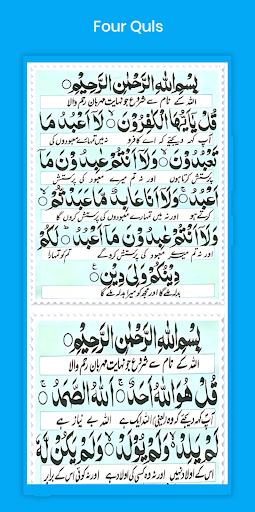 Four Quls
بِسْمِ اللهِ الرَّحْمٰنِ الرَّحِيْمِ
اللہ کے نام سے شروع جو نہایت مہربان رحم والا
قُلْ يٰٓاَيُّهَا الْكٰفِرُوْنَ ۙ لَآ اَعْبُدُ مَا
آپ کہہ دیجئے کہ اے کافرو نہ میں تمہارے معبودوں کی
تَعْبُدُوْنَ ۙ وَلَآ اَنْتُمْ عٰبِدُوْنَ مَآ
پرستش کرتا ہوں اور نہ تم میرے معبود کی پرستش
اَعْبُدُ ۚ وَلَآ اَنَا عَابِدٌ مَّا عَبَدْتُّمْ ۙ
کرتے ہو اور نہ میں تمہارے معبودوں کی پرستش کروں گا
وَلَآ اَنْتُمْ عٰبِدُوْنَ مَآ اَعْبُدُ ؕ لَكُمْ
اور نہ تم میرے معبود کی پرستش کرو گے تم کو تمہارا
دِيْنُكُمْ وَلِيَ دِيْنِ
بدلہ ملے گا اور مجھ کو میرا بدلہ ملے گا
بِسْمِ اللهِ الرَّحْمٰنِ الرَّحِيْمِ
اللہ کے نام سے شروع جو نہایت مہربان رحم والا
قُلْ هُوَ اللهُ اَحَدٌ ۚ اَللهُ الصَّمَدُ ۚ
آپ کہہ دیجئے کہ وہ یعنی اللہ ایک ہے اللہ بے نیاز ہے
لَمْ يَلِدْ ۙ وَلَمْ يُوْلَدْ ۙ وَلَمْ يَكُنْ لَّهٗ
اس کے اولاد نہیں اور نہ وہ کسی کی اولاد ہے اور نہ کوئی اس کے برابر